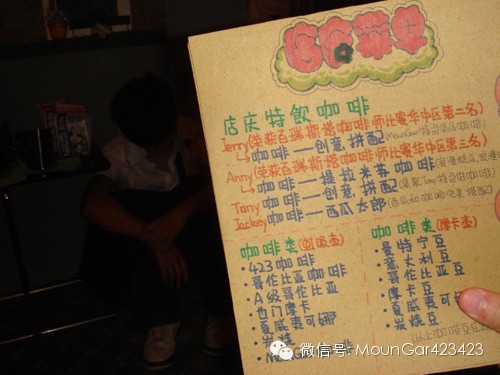 店庆特飲咖啡
Jerry(荣获百瑞斯塔咖啡师比赛华中区第二名)
咖啡——创意拼配
Anny(荣获百瑞斯塔咖啡师比赛华中区第三名)
咖啡——提拉米苏咖啡
Tony 咖啡——创意拼配
Jackey 咖啡——西瓜太郎
咖啡类(虹吸壶)
·423咖啡
·哥伦比亚咖啡
·A级哥伦比亚
·也门摩卡
·夏威夷可娜
·炭烧
咖啡类(摩卡壶)
·曼特宁豆
·意大利豆
·哥伦比亚豆
·摩卡豆
·夏威夷可娜
·炭烧豆
微信号: MounGar423423